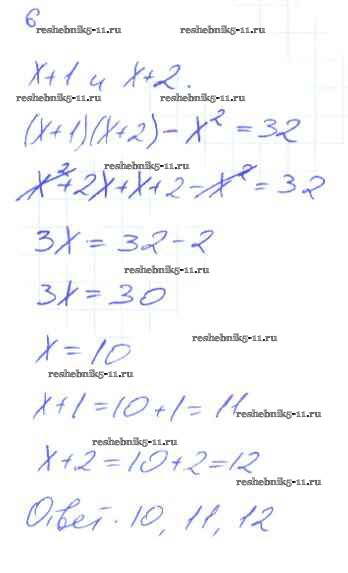 6
reshebnik5-11.ru reshebnik5-11.ru
x+1 и x+2.
reshebnik5-11.ru reshebnik5-11.ru
(x+1)(x+2)-x²=32
reshebnik5-11.ru
x²+2x+x+2-x²=32
reshebnik5-11.ru reshebnik5-11.ru
3x=32-2
reshebnik5-11.ru
3x=30
reshebnik5-11.ru
x=10
reshebnik5-11.ru
x+1=10+1=11
reshebnik5-11.ru
reshebnik5-11.ru
x+2=10+2=12
reshebnik5-11.ru
Ответ. 10, 11, 12